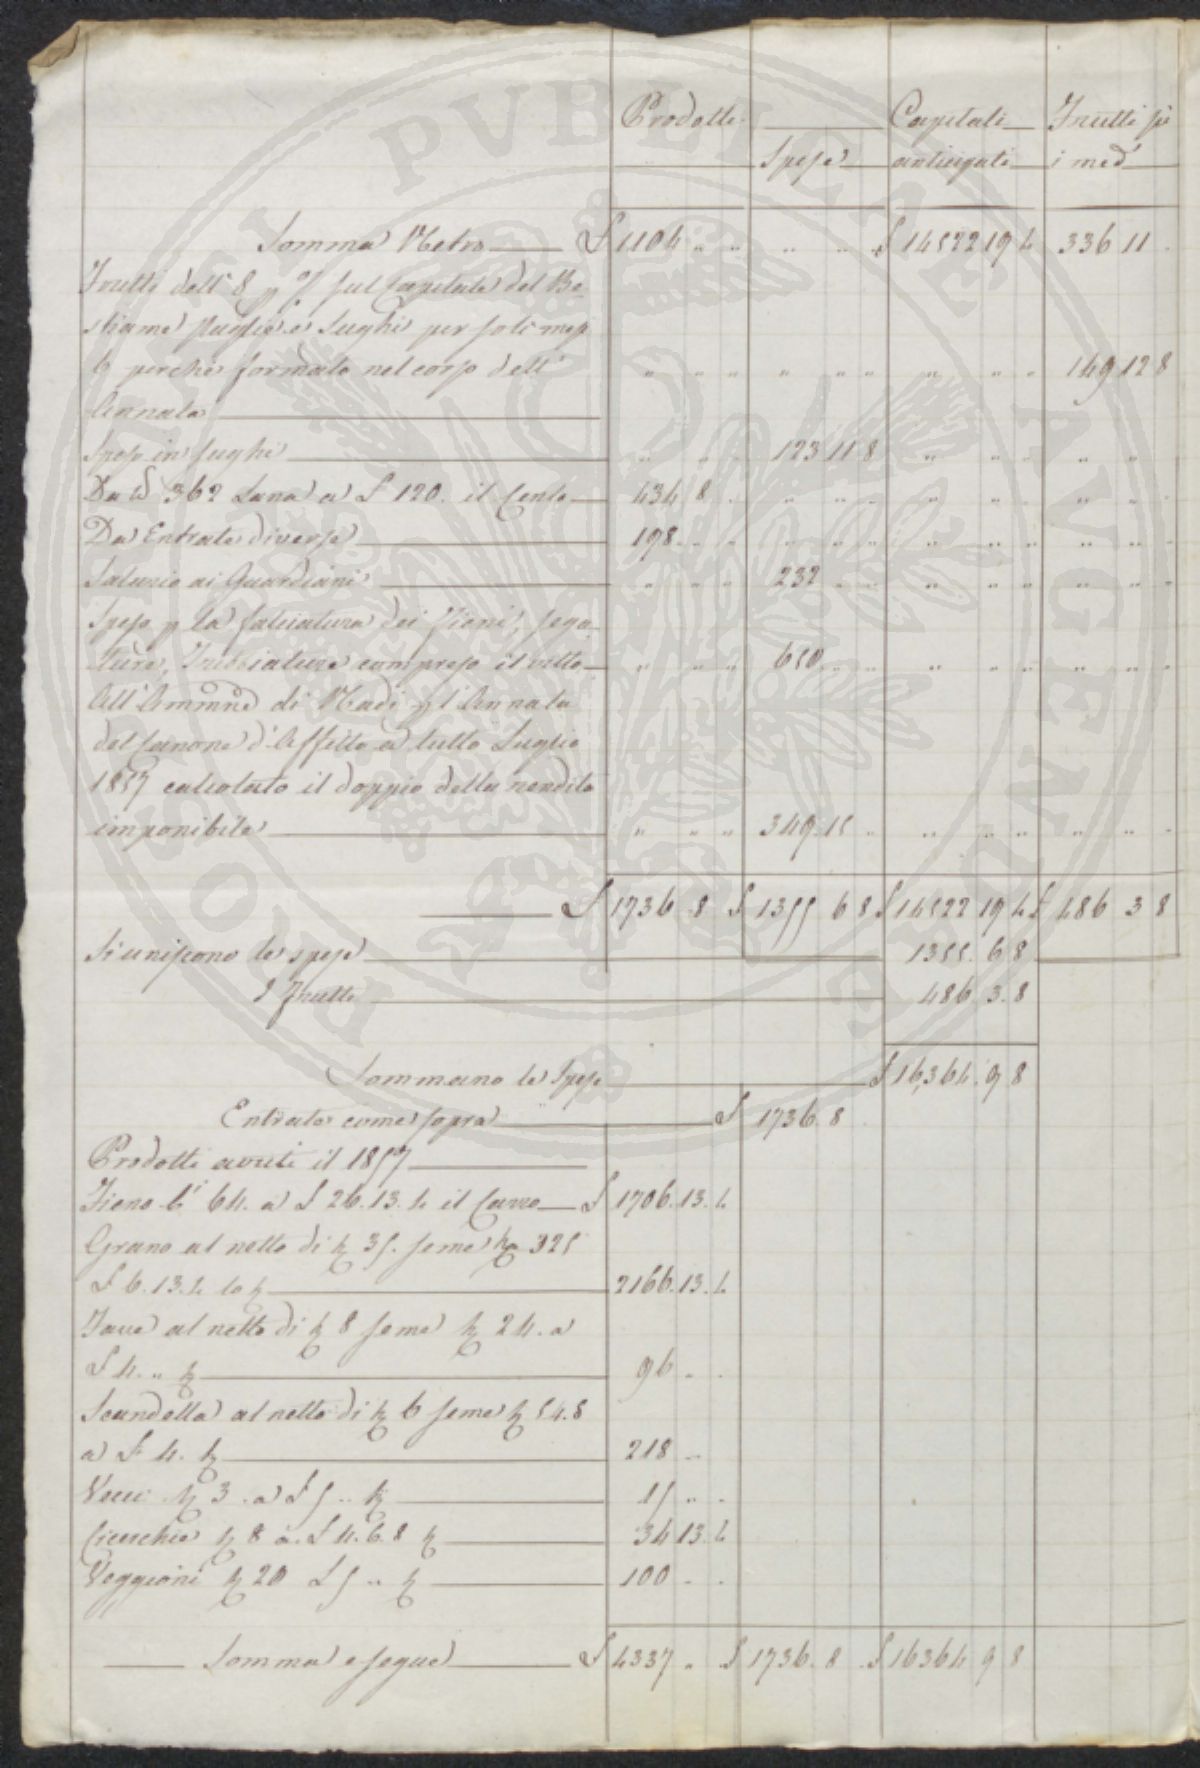 Prodotti Capitali Frutti su
Spese anticipati i med.
Somma Retro £ 1104 " " " " £ 14522 19 4 336 11 "
Frutti dell' 8 p % sul Capitale del Be-
stiame Paglie e Sughi per soli mesi
6 perchè formato nel corso dell' " " " " " " " " " 149 12 8
Annata
Spese in sughi " " " 123 11 8 " " " " "
Da lb 362 Lana a £ 120. il Cento 434 8 . " " " " " " " " "
Da Entrate diverse 198 " " " " " " " " " " "
Salario ai Guardiani " " " 232 " " " " " " " "
Spese p la falciatura dei Fieni, sega-
ture, Trebbiature compreso il vitto " " " 650 " " " " " " " "
All' Ammne di Madi p l'Annata
del Canone d'Affitto a tutto Luglio
1857 calcolato il doppio della rendita
imponibile " " " 349 15 " " " " " " "
£ 1736 8 £ 1355 6 8 £ 14522 19 4 £ 486 3 8
Si uniscono le spese 1355. 6 8
I Frutti 486. 3. 8
Sommano le Spese £ 16364. 9 8
Entrate come sopra £ 1736. 8
Prodotti avuti il 1857
Fieno Ci 64. a £ 26. 13. 4 il Carro £ 1706. 13. 4
Grano al netto di 35. seme 325
£ 6. 13. 4 lo 2166. 13. 4
Fave al netto di 8 seme 24. a
£ 4. " 96 " .
Scandella al netto di 6 seme 54. 8
a £ 4. 218 "
Vecci 3. a £ 5 " 15 " .
Cicerchie 8 a £ 4. 6. 8 34 13. 4
Veggioni 20 £ 5 " 100 " .
Somma e segue £ 4337 " £ 1736. 8 £ 16364 9 8
PVBLICAE AVGENDAE